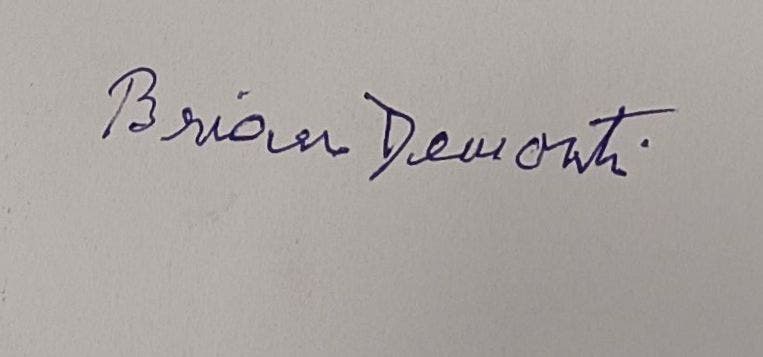 Brian Demonti